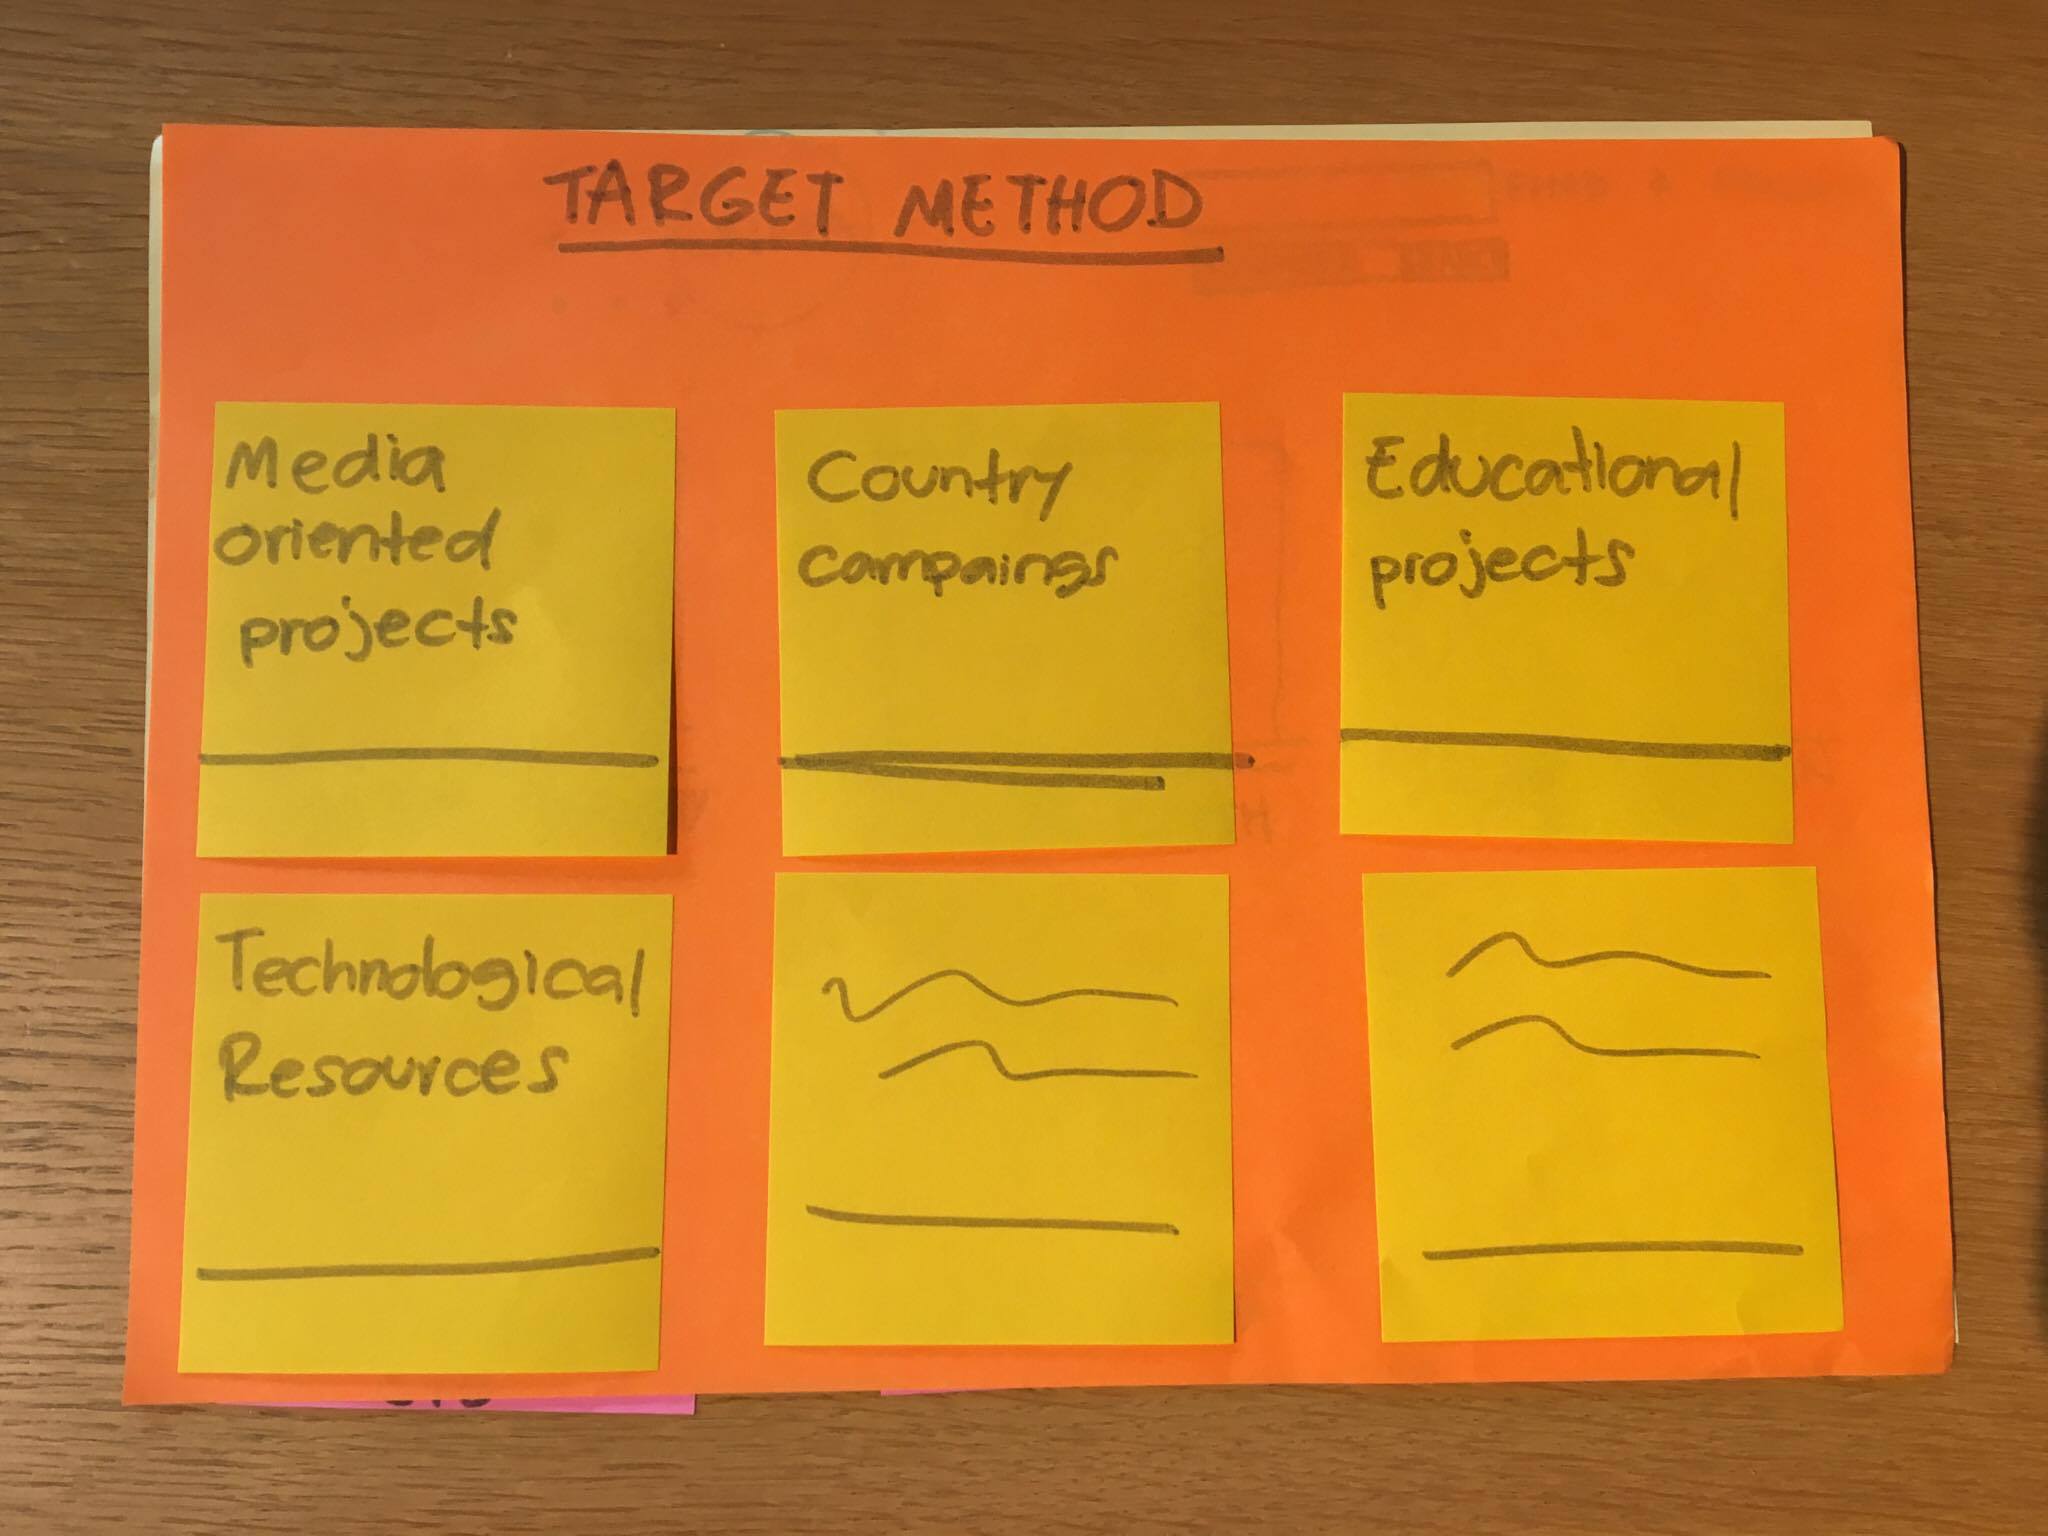 TARGET METHOD
Media
oriented
projects
Country
campaings
Educational
projects
Technological
Resources